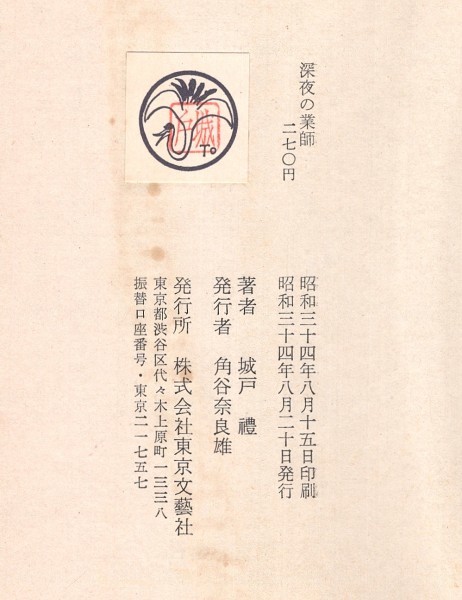 深夜の業師
二七〇円
城戸
TO
昭和三十四年八月十五日印刷
昭和三十四年八月二十日発行
著者 城戸 禮
発行者 角谷奈良雄
発行所 株式会社東京文藝社
東京都渋谷区代々木上原町一三三八
振替口座番号・東京二一七五七